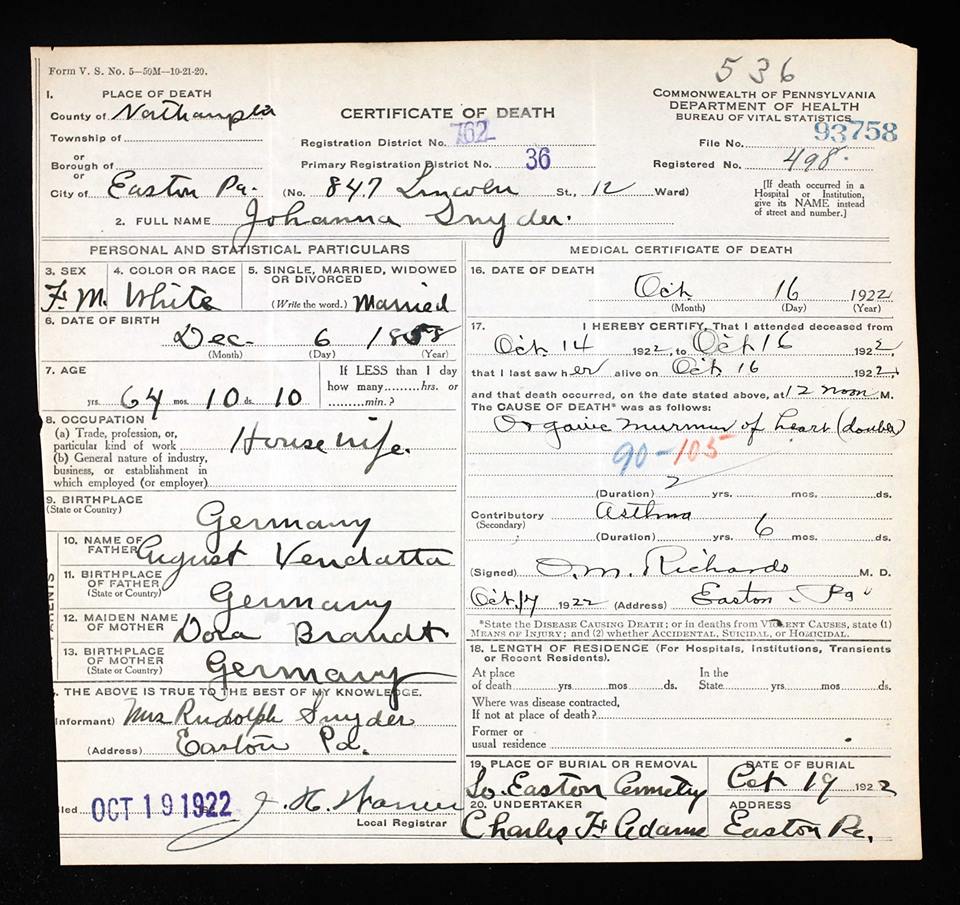 Form V. S. No. 5—50M—10-21-20.
536
COMMONWEALTH OF PENNSYLVANIA
DEPARTMENT OF HEALTH
BUREAU OF VITAL STATISTICS
CERTIFICATE OF DEATH
1. PLACE OF DEATH
County of Northampton
Township of
or
Borough of
or
City of Easton Pa.
Registration District No. 762
Primary Registration District No. 36
File No. 93758
Registered No. 498.
(No. 847 Lincoln St., 12 Ward)
[If death occurred in a Hospital or Institution, give its NAME instead of street and number.]
2. FULL NAME Johanna Snyder.
PERSONAL AND STATISTICAL PARTICULARS
3. SEX
F. M.
4. COLOR OR RACE
White
5. SINGLE, MARRIED, WIDOWED OR DIVORCED
(Write the word.) Married
6. DATE OF BIRTH
Dec. 6 1858
(Month) (Day) (Year)
7. AGE
64 yrs. 10 mos. 10 ds.
If LESS than 1 day
how many........hrs. or
........min.?
8. OCCUPATION
(a) Trade, profession, or,
particular kind of work Housewife.
(b) General nature of industry,
business, or establishment in
which employed (or employer)
9. BIRTHPLACE
(State or Country)
Germany
PARENTS
10. NAME OF FATHER August Vendatta
11. BIRTHPLACE OF FATHER
(State or Country)
Germany
12. MAIDEN NAME OF MOTHER Dora Brandt
13. BIRTHPLACE OF MOTHER
(State or Country)
Germany
THE ABOVE IS TRUE TO THE BEST OF MY KNOWLEDGE.
Informant) Mrs Rudolph Snyder
(Address) Easton Pa.
OCT 19 1922
Local Registrar
MEDICAL CERTIFICATE OF DEATH
16. DATE OF DEATH
Oct. 16 1922
(Month) (Day) (Year)
17. I HEREBY CERTIFY, That I attended deceased from
Oct. 14 1922, to Oct 16 1922,
that I last saw her alive on Oct. 16 1922,
and that death occurred, on the date stated above, at 12 noon M.
The CAUSE OF DEATH* was as follows:
Organic murmur of heart (double)
90-105
(Duration) 2 yrs. mos. ds.
Contributory Asthma
(Secondary)
(Duration) yrs. 6 mos. ds.
(Signed) Richards M. D.
Oct. 17 1922 (Address) Easton, Pa
*State the DISEASE CAUSING DEATH; or in deaths from VIOLENT CAUSES, state (1)
MEANS OF INJURY; and (2) whether ACCIDENTAL, SUICIDAL, or HOMICIDAL.
18. LENGTH OF RESIDENCE (For Hospitals, Institutions, Transients
or Recent Residents).
At place
of death......yrs......mos......ds.
In the
State......yrs......mos......ds.
Where was disease contracted,
If not at place of death?
Former or
usual residence
19. PLACE OF BURIAL OR REMOVAL
So. Easton Cemetery
DATE OF BURIAL
Oct 19 1922
20. UNDERTAKER
Charles F. Adams
ADDRESS
Easton Pa.